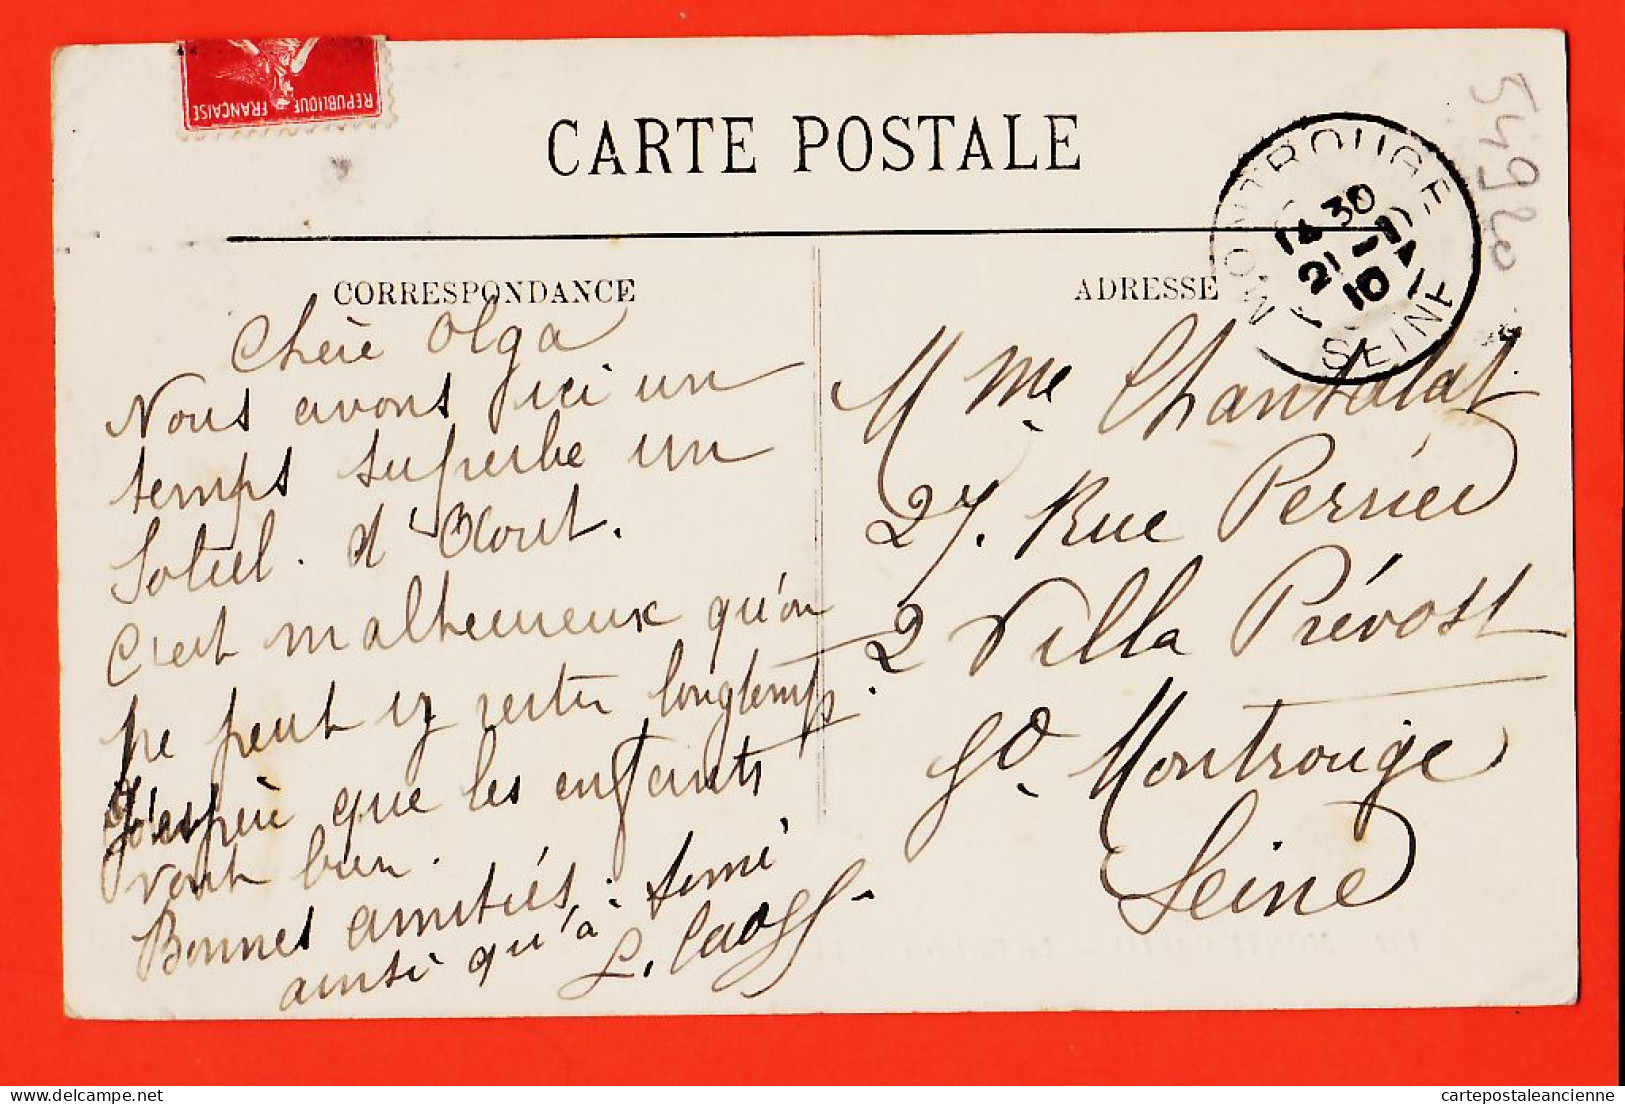 REPUBLIQUE FRANÇAISE
CARTE POSTALE
54920
MONTROUGE
14 30
21 - 1
10
SEINE
CORRESPONDANCE
Chère Olga
Nous avons ici un
temps superbe un
Soleil. d'Aout.
C'est malheureux qu'on
ne peut y rester longtemps.
J'espère que les enfants
vont bien.
Bonnes amitiés à Rémi
ainsi qu'à
ADRESSE
Mme Chantalat
27. Rue Perrier
2 Villa Prévost
Gd. Montrouge
Seine
cartepostaleancienne
delcampe.net